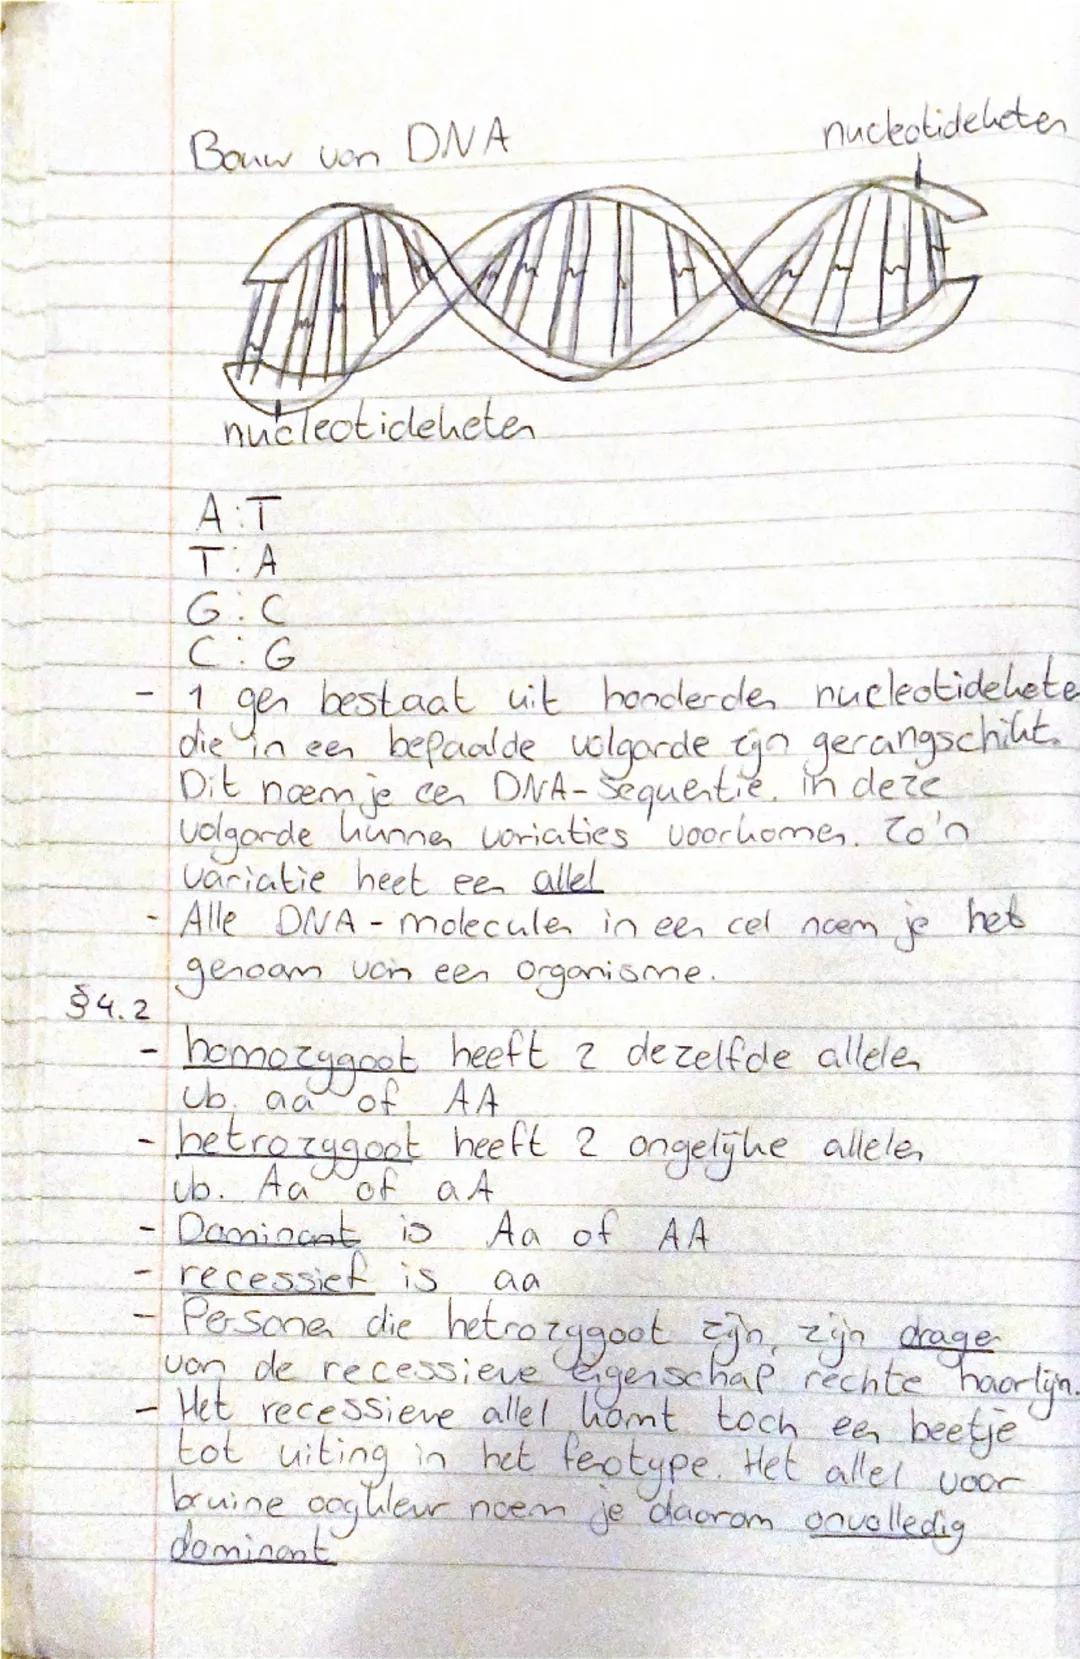 Bouw van DNA
nucleotideketen
nucleotideketen
A:T
T:A
G:C
C:G
- 1 gen bestaat uit honderden nucleotidekete
die in een bepaalde volgorde zijn gerangschikt.
Dit noem je een DNA-Sequentie. in deze
volgorde kunnen variaties voorkomen. Zo'n
variatie heet een allel
- Alle DNA-moleculen in een cel noem je het
genoom van een organisme.
§4.2
- homozygoot heeft 2 dezelfde allelen
vb. aa of AA
- hetrozygoot heeft 2 ongelijke allelen
vb. Aa of aA
- Dominant is Aa of AA
- recessief is aa
- Personen die hetrozygoot zijn, zijn drager
van de recessieve eigenschap rechte haarlijn.
- Het recessieve allel komt toch een beetje
tot uiting in het fenotype. Het allel voor
bruine oogkleur noem je daarom onvolledig
dominant